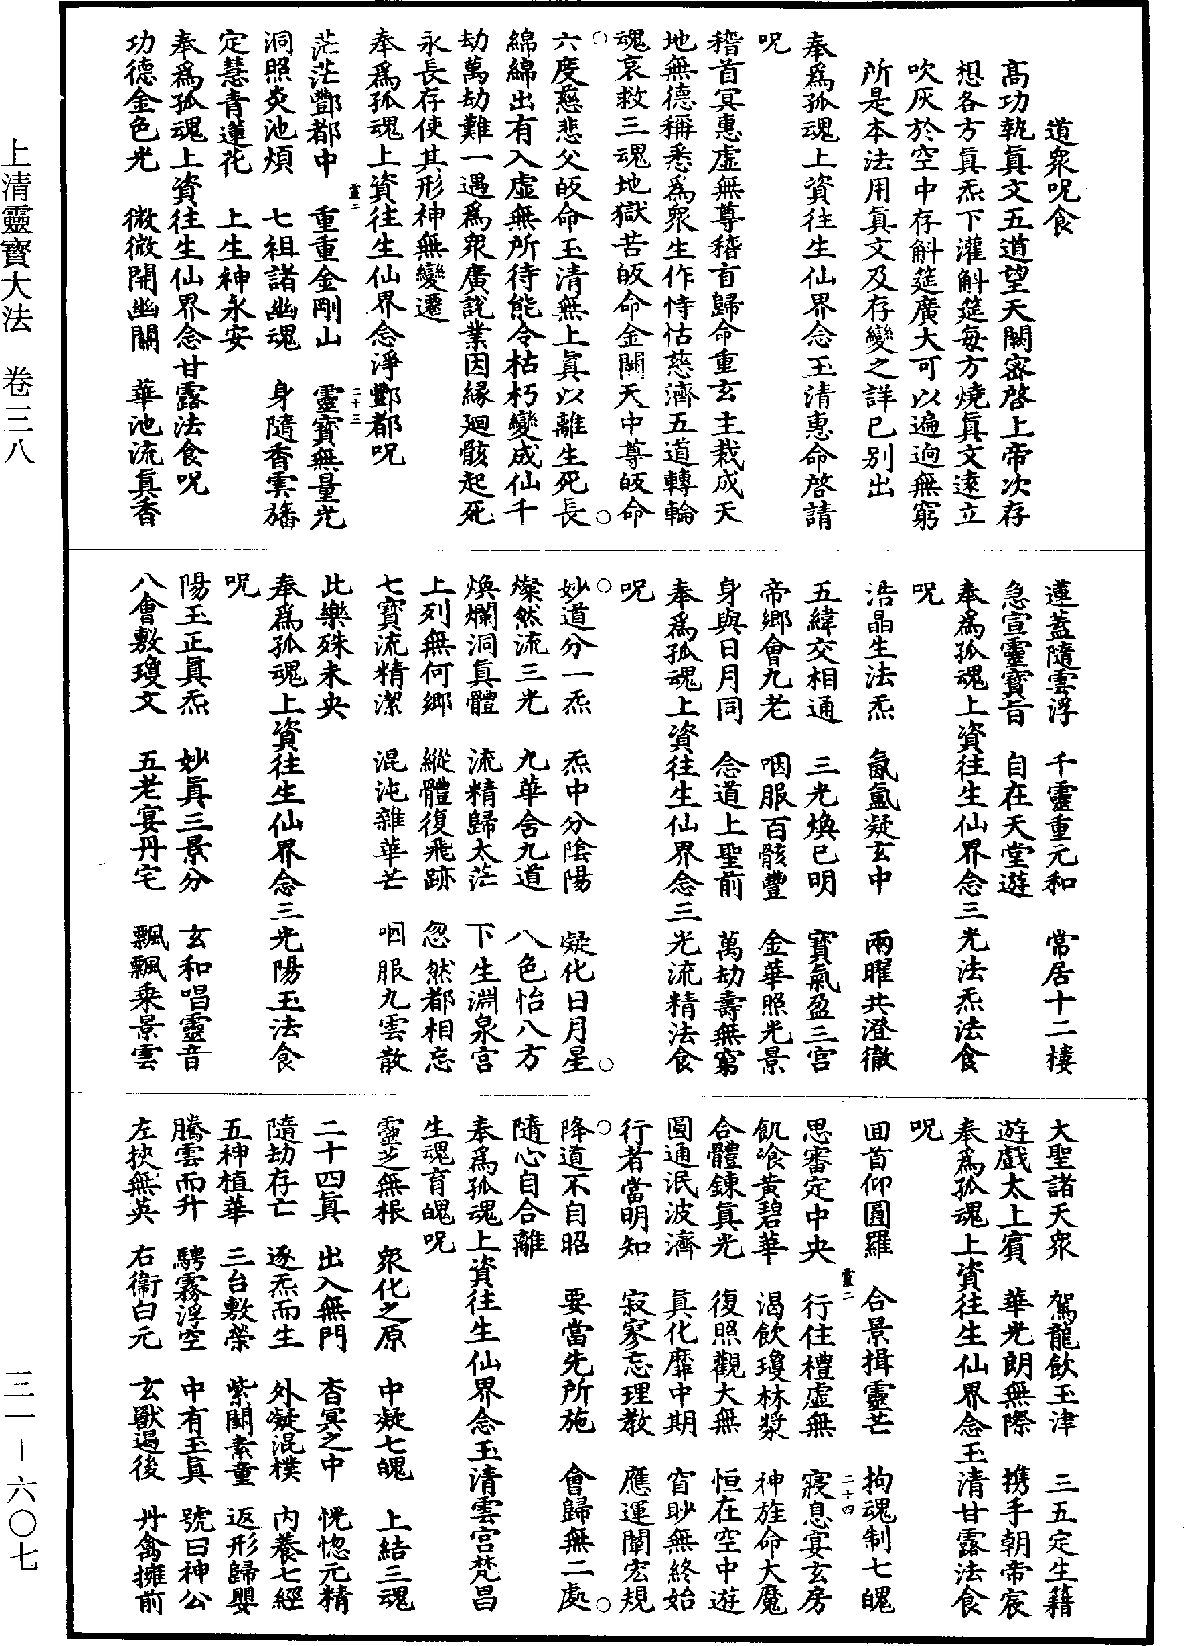 上清靈寶大法　卷三八
三一－六〇七
道衆呪食
高功執眞文五道望天闕密啓上帝次存
想各方眞炁下灌斛筵每方燒眞文遠立
吹灰於空中存斛筵廣大可以遍週無窮
所是本法用眞文及存變之詳已別出
奉爲孤魂上資往生仙界念玉清惠命啓請
呪
稽首冥惠虛無尊稽首歸命重玄主栽成天
地無德稱悉爲衆生作恃怙慈濟五道轉輪
魂哀救三魂地獄苦皈命金闕天中尊皈命
六度慈悲父皈命玉清無上眞以離生死長
綿綿出有入虛無所待能令枯朽變成仙千
劫萬劫難一遇爲衆廣説業因緣廻骸起死
永長存使其形神無變遷
奉爲孤魂上資往生仙界念淨酆都呪
茫茫酆都中　重重金剛山　靈寶無量光
洞照炎池煩　七祖諸幽魂　身隨香雲旛
定慧青蓮花　上生神永安
奉爲孤魂上資往生仙界念甘露法食呪
功德金色光　微微開幽關　華池流眞香
蓮蓋隨雲浮　千靈重元和　常居十二樓
急宣靈寶旨　自在天堂遊
奉爲孤魂上資往生仙界念三光法炁法食
呪
浩晶生法炁　氤氳凝玄中　兩曜共澄徹
五緯交相通　三光煥已明　寶氣盈三宮
帝鄉會九老　咽服百骸豐　金華照光景
身與日月同　念道上聖前　萬劫壽無窮
奉爲孤魂上資往生仙界念三光流精法食
呪
妙道分一炁　炁中分陰陽　凝化日月星
燦然流三光　九華舍九道　八色怡八方
煥爛洞眞體　流精歸太茫　下生淵泉宮
上列無何鄉　縱體復飛跡　忽然都相忘
七寶流精潔　混沌雜華芒　咽服九雲散
此樂殊未央
奉爲孤魂上資往生仙界念三光陽玉法食
呪
陽玉正眞炁　妙眞三景分　玄和唱靈音
八會敷瓊文　五老宴丹宅　飄飄乘景雲
大聖諸天衆　駕龍飲玉津　三五定生籍
遊戲太上賓　華光朗無際　携手朝帝宸
奉爲孤魂上資往生仙界念玉清甘露法食
呪
回首仰圓羅　合景揖靈芒　拘魂制七魄
思審定中央　行住禮虛無　寢息宴玄房
飢飡黃碧華　渴飲瓊林漿　神旌命大魔
合體鍊眞光　復照觀大無　恒在空中遊
圓通泯波濟　眞化靡中期　窅眇無終始
行者當明知　寂寥忘理教　應運闡宏規
降道不自昭　要當先所施　會歸無二處
隨心自合離
奉爲孤魂上資往生仙界念玉清雲宮梵昌
生魂育魄呪
靈芝無根　衆化之原　中凝七魄　上結三魂
二十四眞　出入無門　杳冥之中　恍惚元精
隨劫存亡　逐炁而生　外凝混樸　內養七經
五神植華　三台敷榮　紫闕素童　返形歸嬰
騰雲而升　騁霧浮空　中有玉眞　號曰神公
左挾無英　右衞白元　玄獸遏後　丹禽擁前
靈二
二十三
靈二
二十四